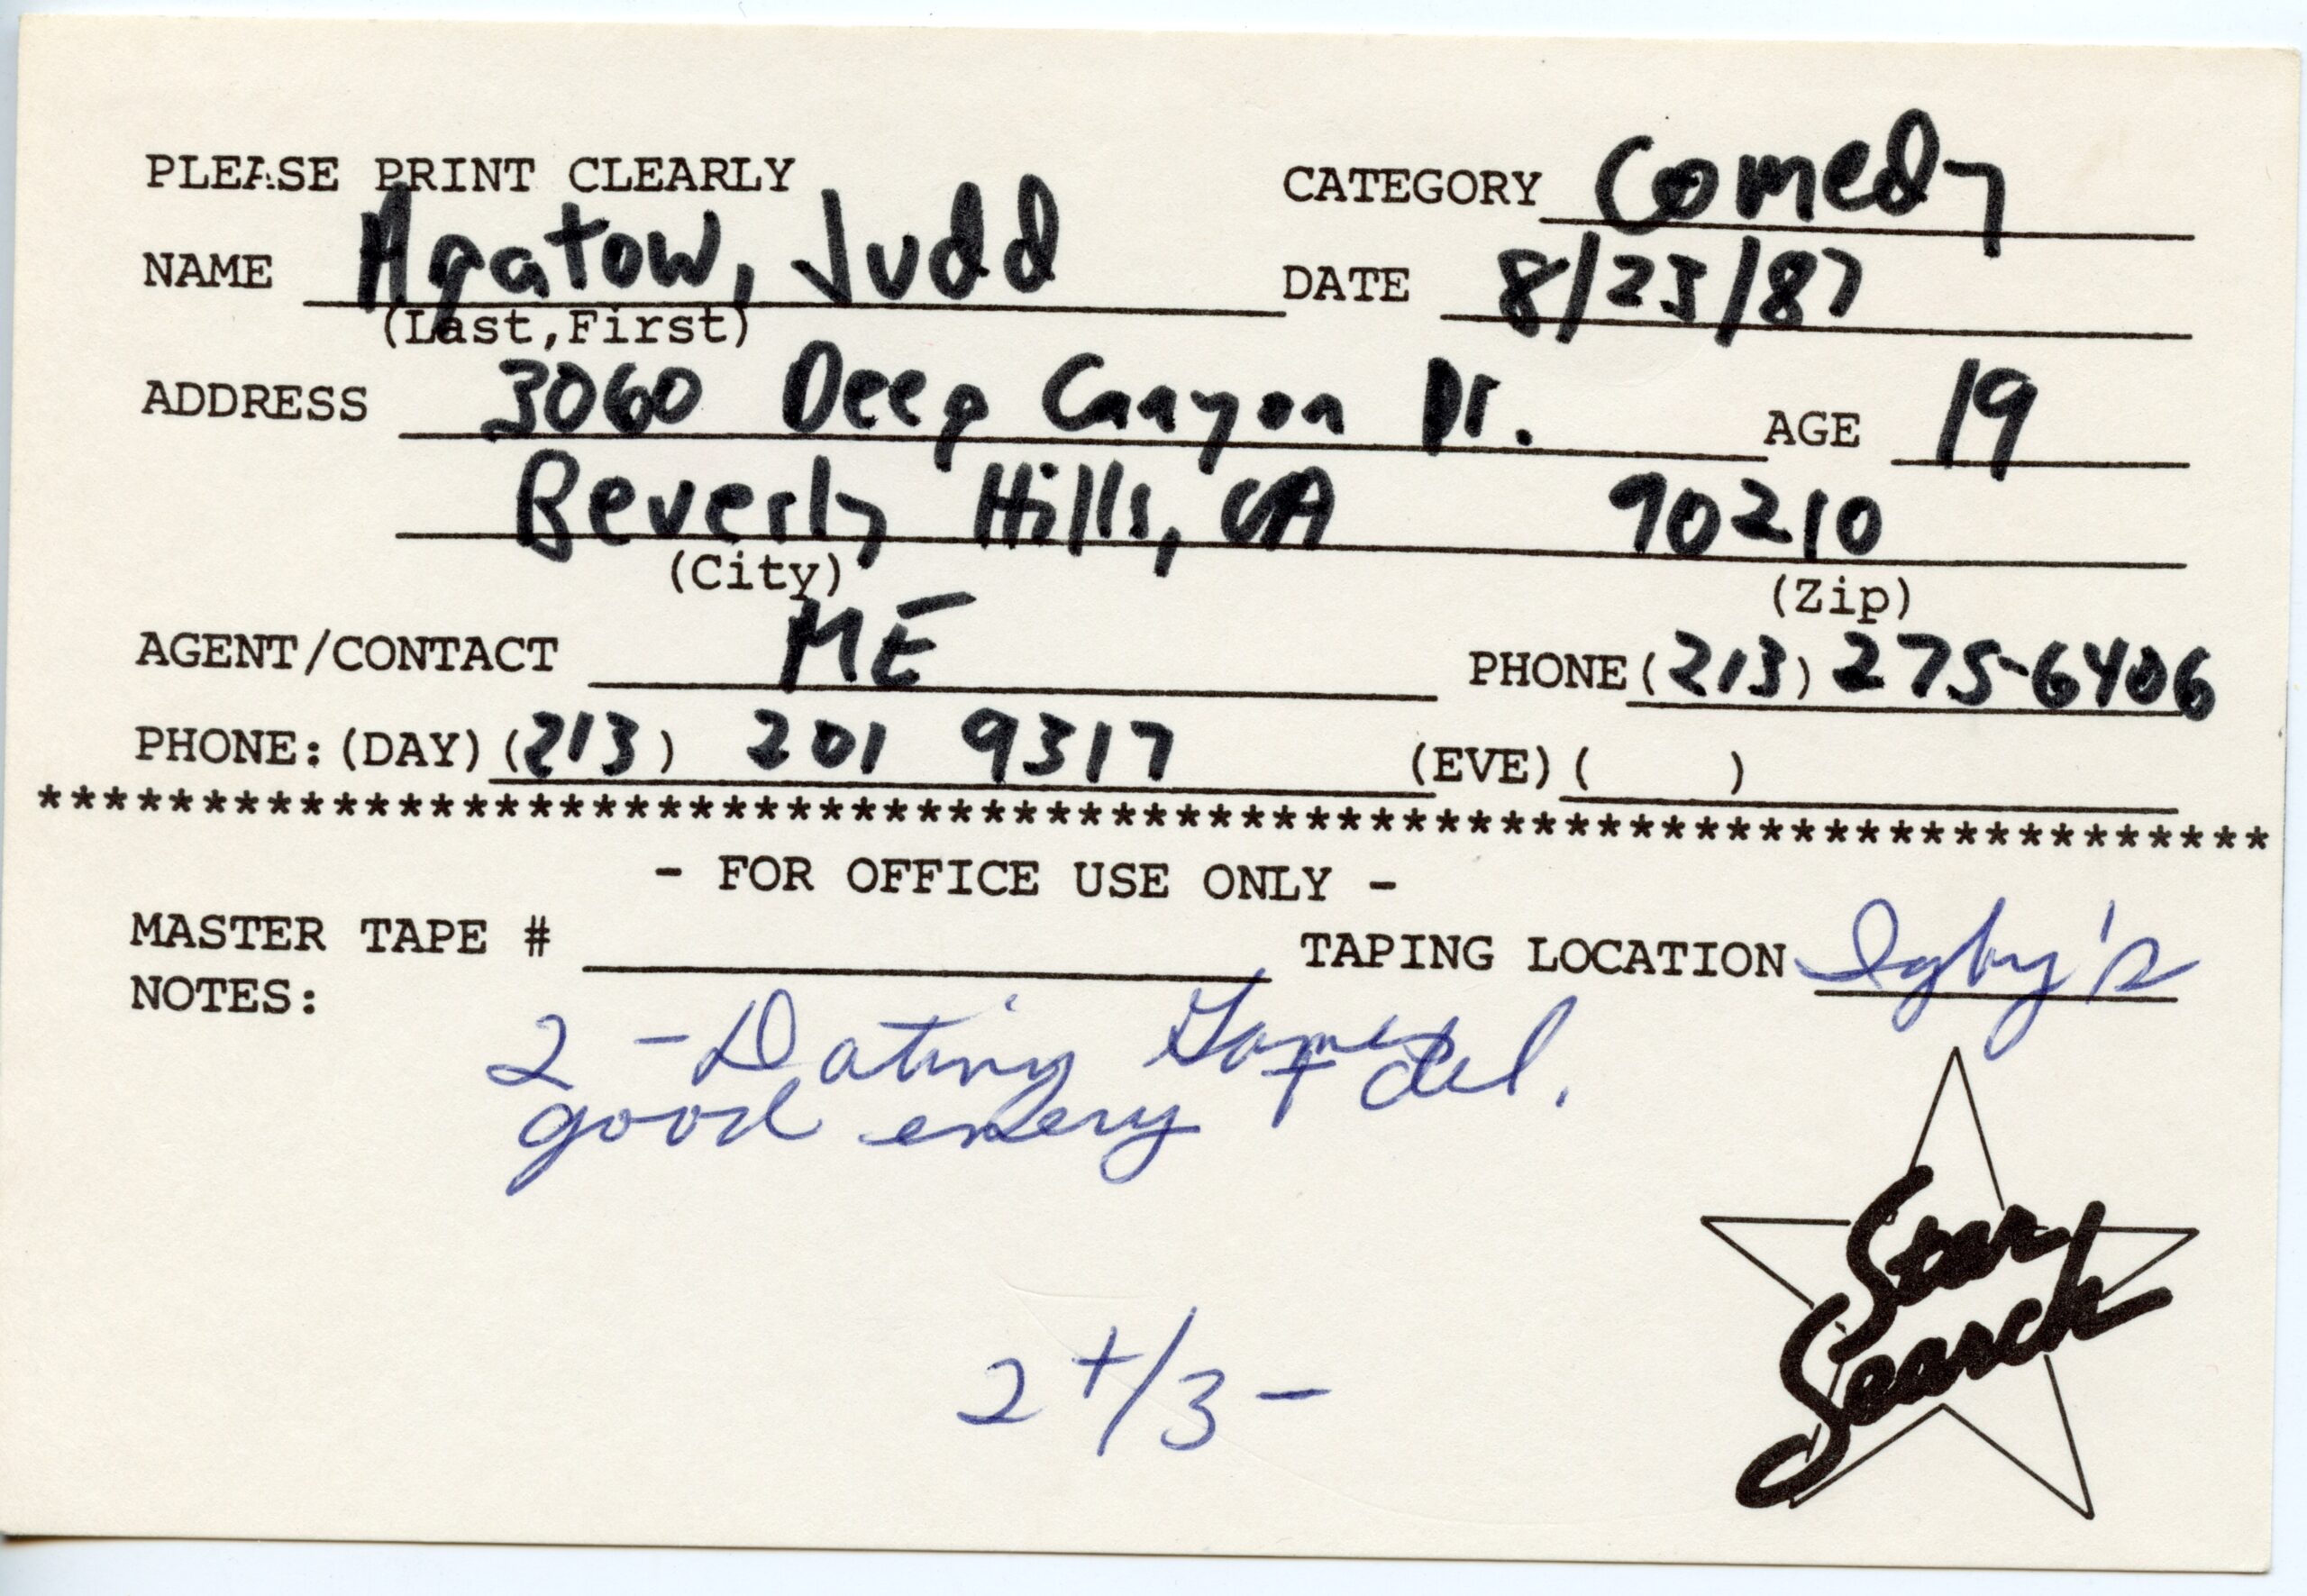 PLEASE PRINT CLEARLY
CATEGORY Comedy
NAME Apatow, Judd
DATE 8/23/87
(Last,First)
ADDRESS 3060 Deep Canyon Dr. AGE 19
Beverly Hills, CA 90210
(City) (Zip)
AGENT/CONTACT ME PHONE (213) 275-6406
PHONE: (DAY) (213) 201 9317 (EVE) ( )
**********************************************************************
- FOR OFFICE USE ONLY -
MASTER TAPE # TAPING LOCATION Igby's
NOTES:
2 - Dating Game
good energy + del.
2+/3-
Star
Search